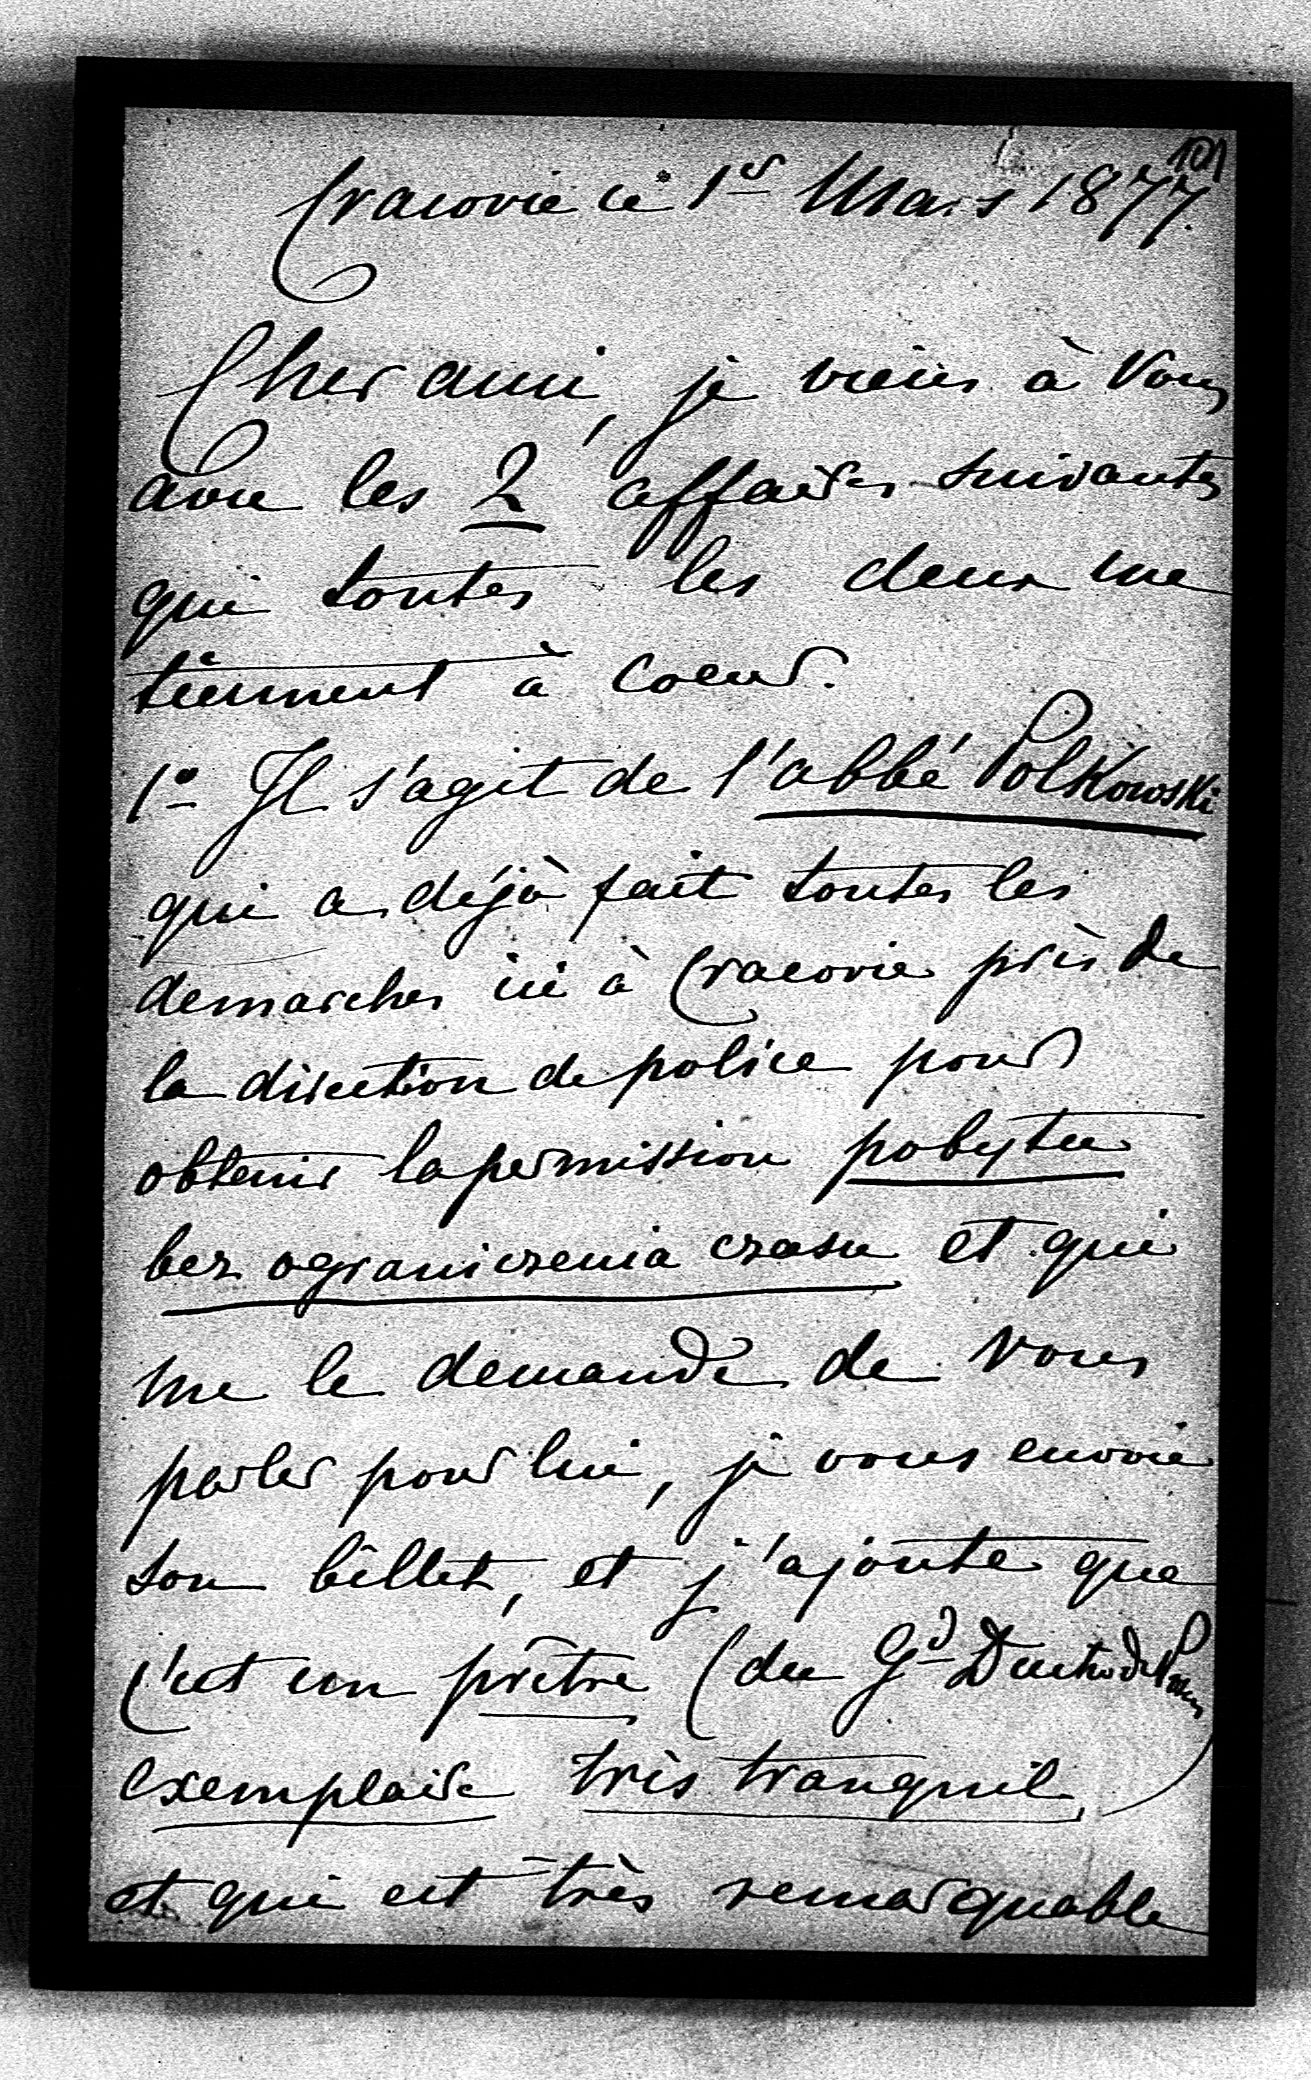 101
Cracovie ce 1er Mars 1877.
Cher ami, je viens à Vous
avec les 2 affaires suivantes
qui toutes les deux me
tiennent à coeur.
1o Il s'agit de l'abbé Polkowski
qui a déjà fait toutes les
demarches ici à Cracovie près de
la direction de police pour
obtenir la permission pobytu
bez ograniczenia czasu et qui
me le demande de vous
parler pour lui, je vous envoie
son billet, et j'ajoute que
c'est un prêtre (du Gd Duché de Posen)
exemplaire très tranquil,
et qui est très remarquable